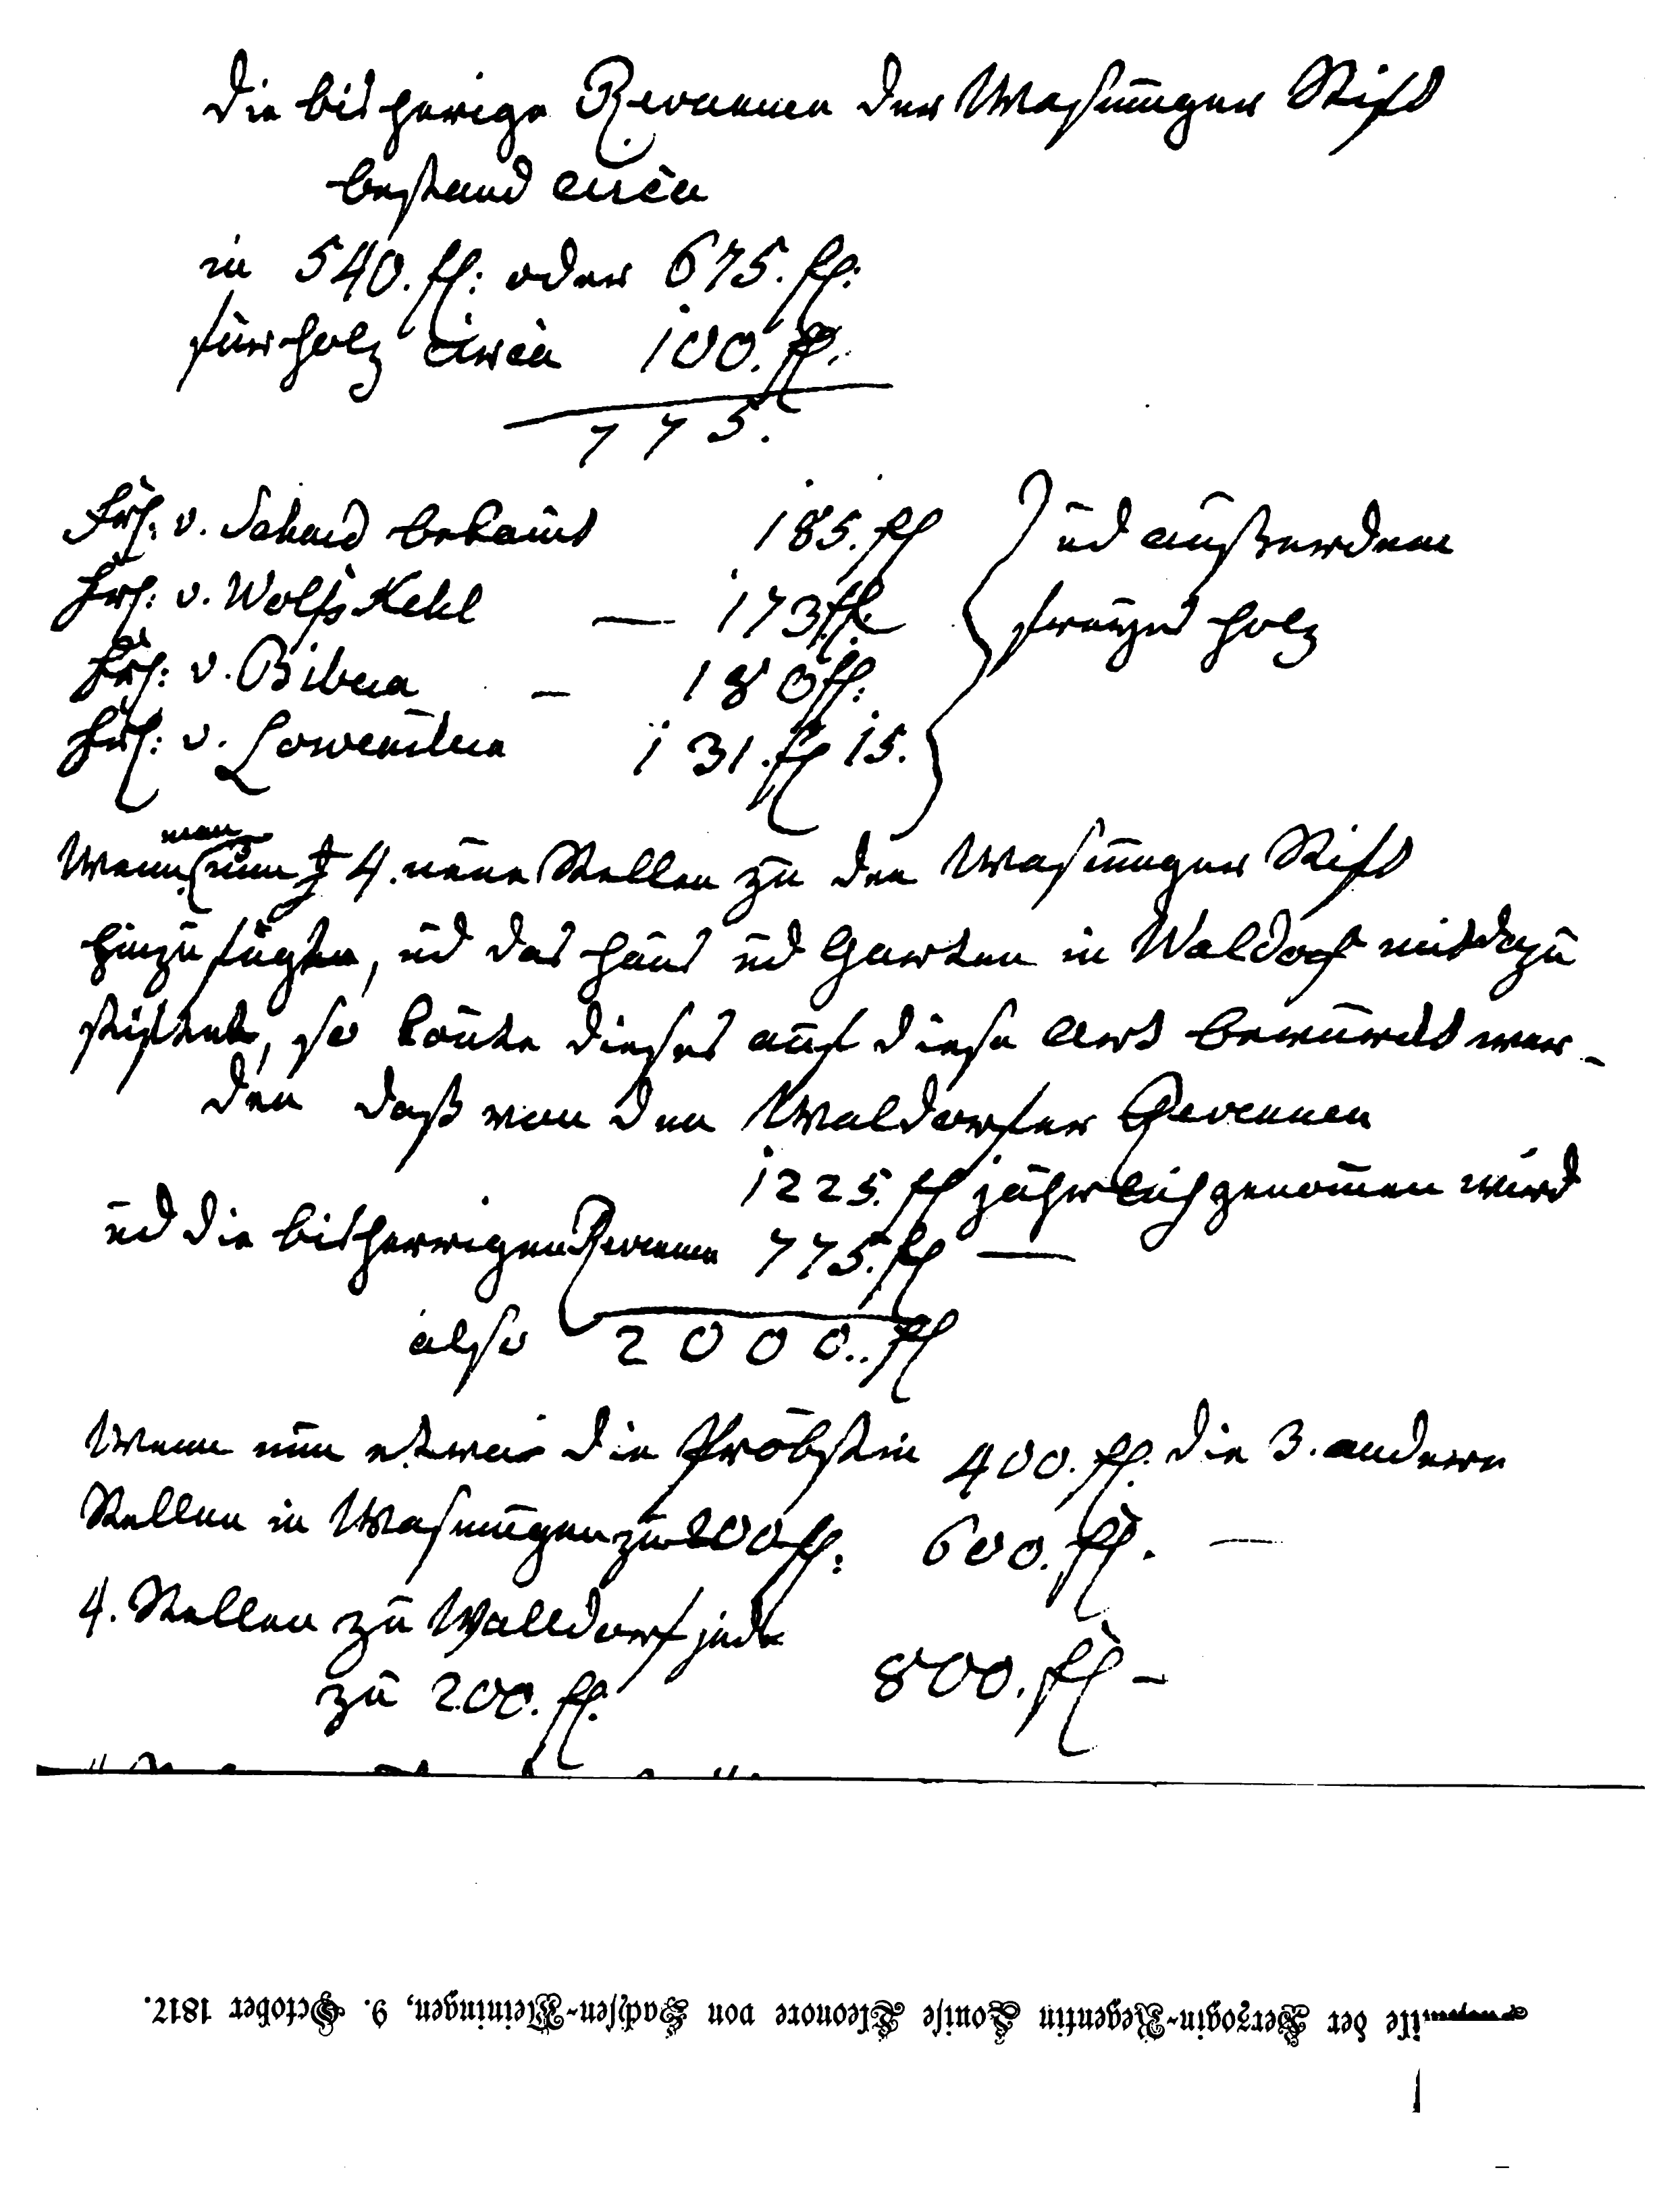 die bisherige Revenuen der Wasunger Stift
bestand circa
in 540. fl: oder 675. fl:
für holz circa 100. fl.
775.
Frl: v. Schard bekamt 185. fl } ūd außerdem
Frl: v. Wolfs Kehl — 173 fl. freyes holz
Frl: v. Bibra — 180 fl:
Frl: v. Lowenstern 131. fl 15.
Wenn man nun 4. neue Stellen zu den Wasunger Stift
hinzu fügten, ūd das Haus ūd Garten in Waldorf mit dazu
stiftete, so könte dieses auf diese Art bewürckt wer-
den daß von den Waldorfer Revenuen
1225. fl jährlich genom̄en wird
ūd die bisherrigen Revenuen 775. fl —
also 2000.. fl
Wenn nun etwa die Pröbstin 400. fl. die 3. andern
Stellen in Wasungen zu 200 fl: 600. fl. —
4. Stellen zu Walldorf jede
zu 200. fl. 800. fl —
der Herzogin-Regentin Louise Eleonore von Sachsen-Meiningen, 9. October 1817.